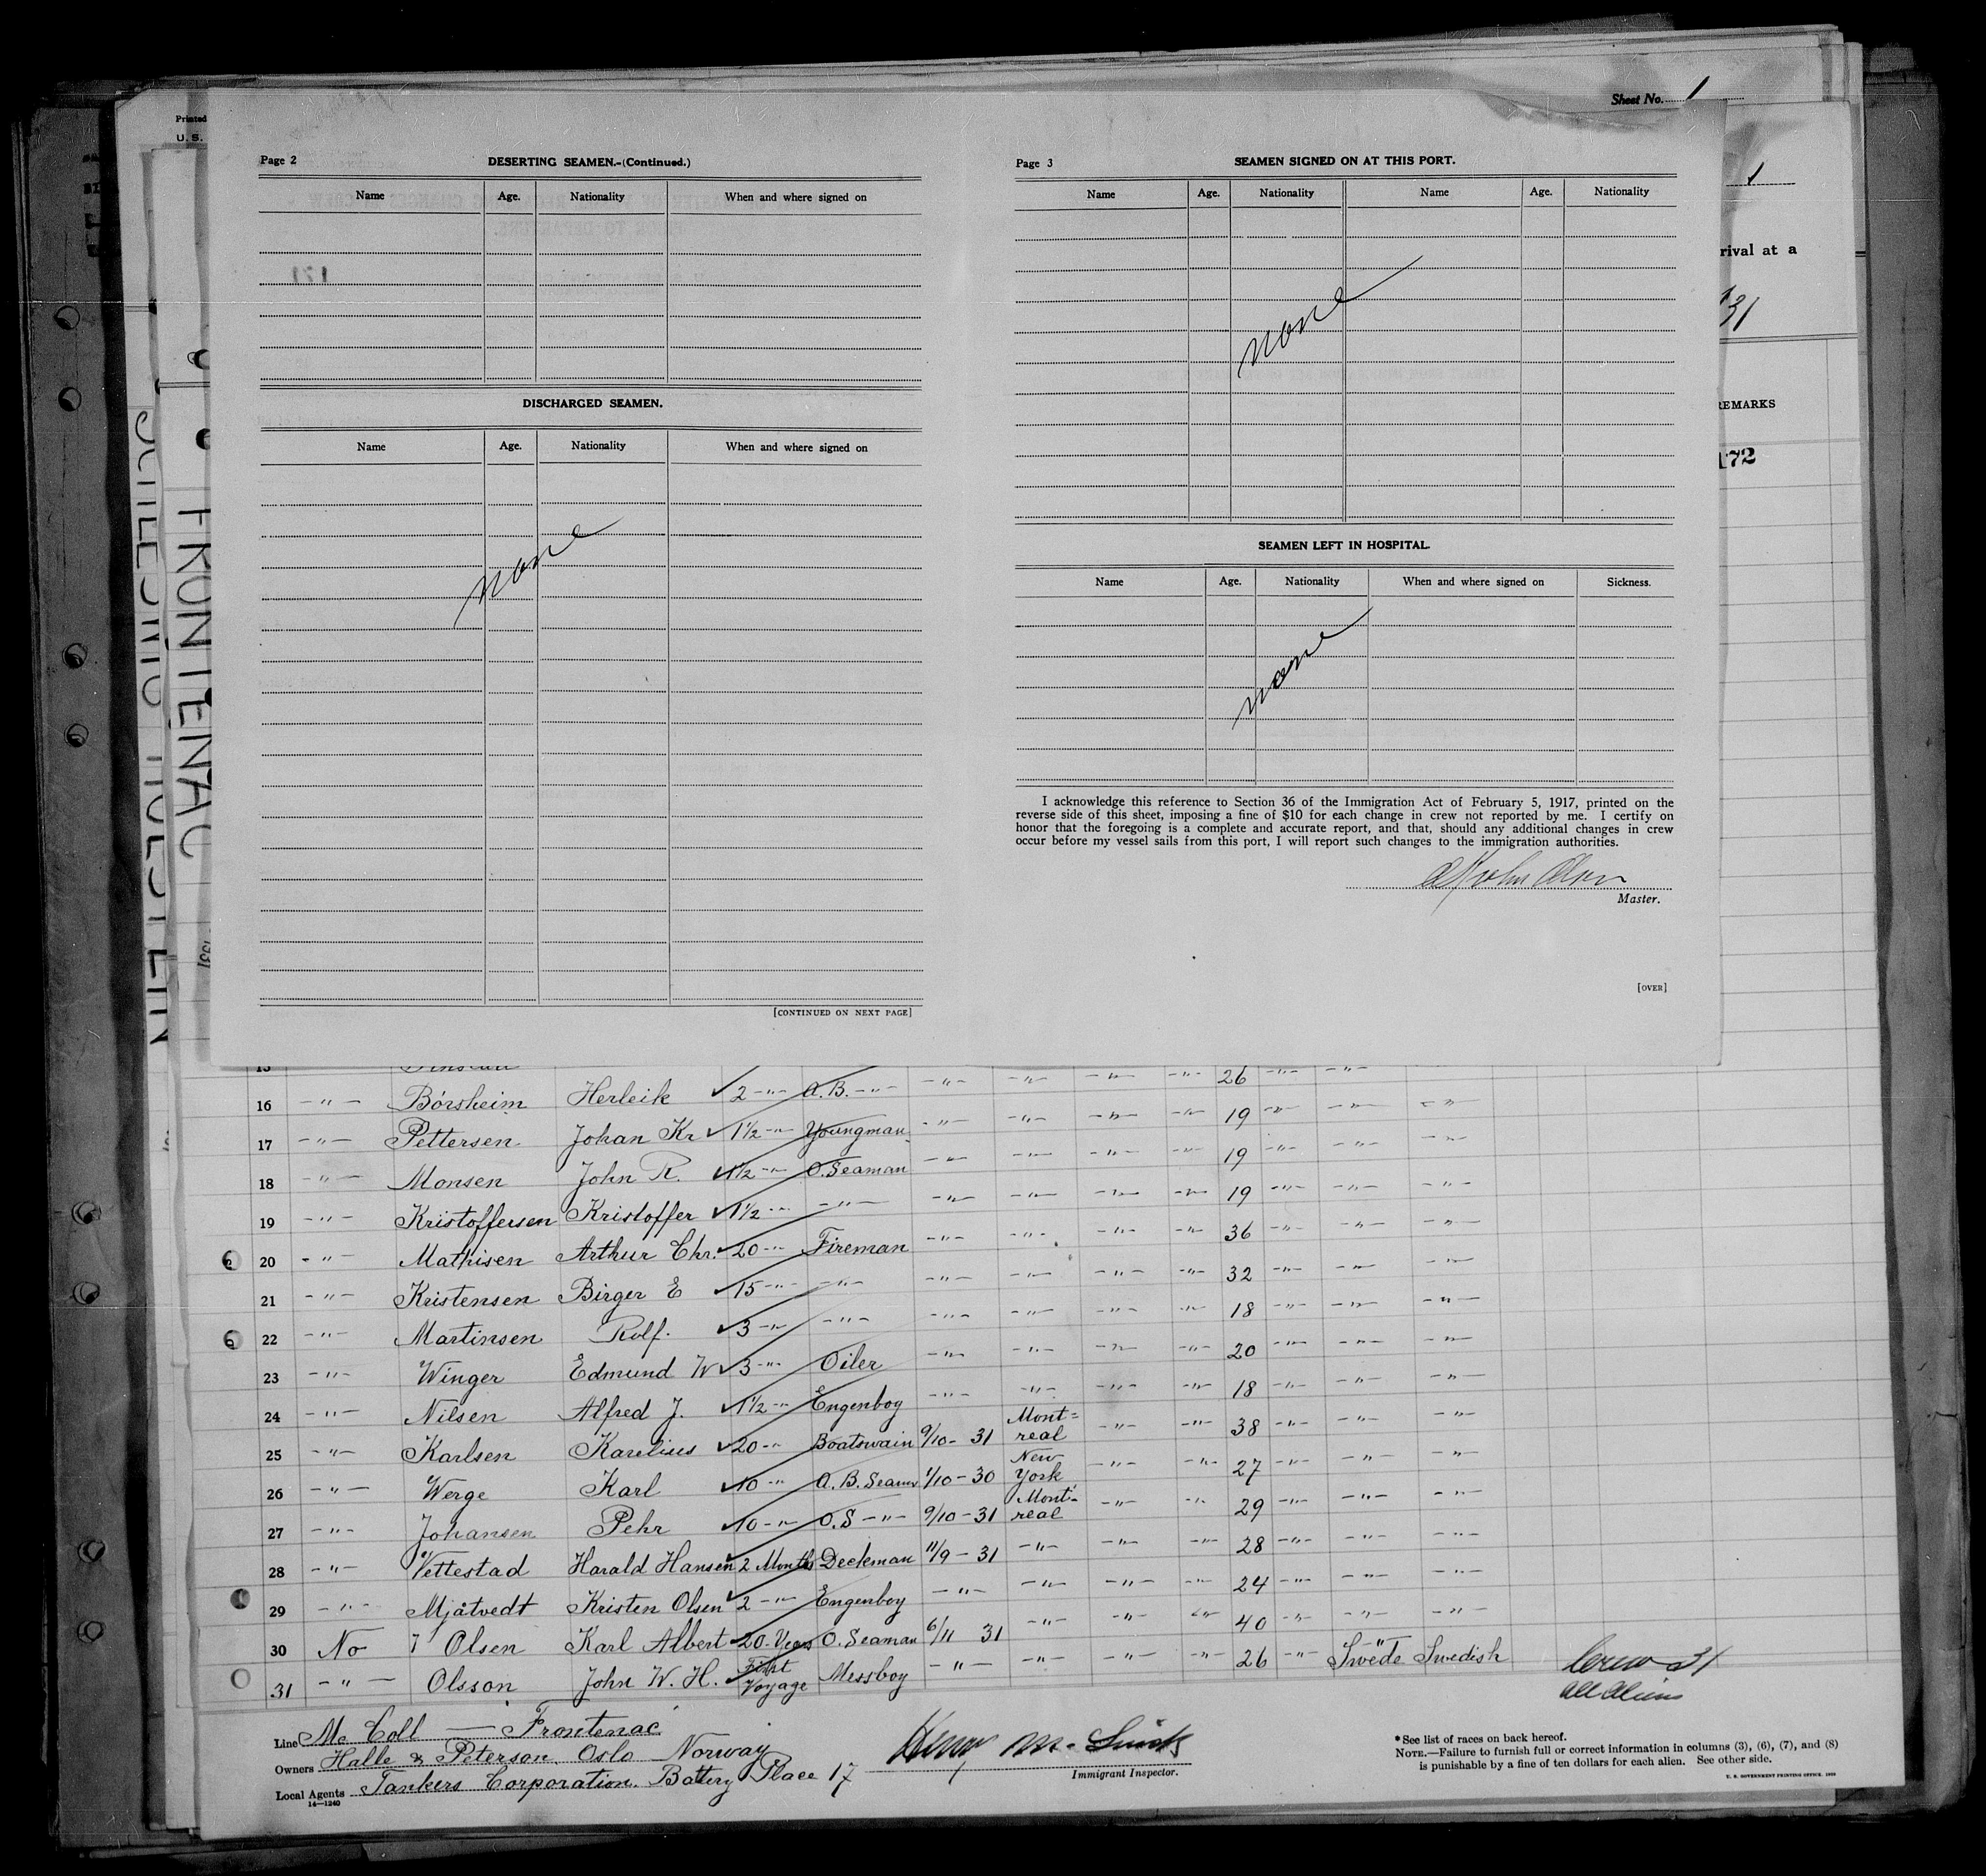 Sheet No. 1
Printed
U. S.
Page 2
DESERTING SEAMEN.-(Continued.)
Name Age. Nationality When and where signed on
171
DISCHARGED SEAMEN.
Name Age. Nationality When and where signed on
none
[CONTINUED ON NEXT PAGE]
Page 3
SEAMEN SIGNED ON AT THIS PORT.
Name Age. Nationality Name Age. Nationality
none
SEAMEN LEFT IN HOSPITAL.
Name Age. Nationality When and where signed on Sickness.
none
I acknowledge this reference to Section 36 of the Immigration Act of February 5, 1917, printed on the
reverse side of this sheet, imposing a fine of $10 for each change in crew not reported by me. I certify on
honor that the foregoing is a complete and accurate report, and that, should any additional changes in crew
occur before my vessel sails from this port, I will report such changes to the immigration authorities.
Master.
[OVER]
1
rival at a
31
REMARKS
172
FRONTENAC
15 26
16 -"- Börsheim Herleik ✓ 2 -"- A.B. -"- -"- -"- -"- -"- 19 -"- -"- -"-
17 -"- Pettersen Johan Kr ✓ 1½ -"- Youngman -"- -"- -"- -"- 19 -"- -"- -"-
18 -"- Monsen John R. ✓ 1½ -"- O. Seaman -"- -"- -"- -"- 19 -"- -"- -"-
19 -"- Kristoffersen Kristoffer ✓ 1½ -"- -"- -"- -"- -"- -"- 36 -"- -"- -"-
20 -"- Mathisen Arthur Chr. ✓ 20 -"- Fireman -"- -"- -"- -"- 32 -"- -"- -"-
21 -"- Kristensen Birger E ✓ 15 -"- -"- -"- -"- -"- -"- 18 -"- -"- -"-
22 -"- Martinsen Rolf. ✓ 3 -"- -"- -"- -"- -"- -"- 20 -"- -"- -"-
23 -"- Winger Edmund W ✓ 3 -"- Oiler -"- -"- -"- -"- 18 -"- -"- -"-
24 -"- Nilsen Alfred J. ✓ 1½ -"- Engenboy -"- -"- -"- -"- 38 -"- -"- -"-
25 -"- Karlsen Karelius ✓ 20 -"- Boatswain 9/10 - 31 Mont= real -"- -"- 27 -"- -"- -"-
26 -"- Werge Karl ✓ 10 -"- A.B. Seaman 1/10 - 30 New York -"- -"- 29 -"- -"- -"-
27 -"- Johansen Pehr ✓ 10 -"- O.S -"- 9/10 - 31 Mont= real -"- -"- 28 -"- -"- -"-
28 -"- Vettestad Harald Hansen ✓ 2 Months Deckman 11/9 - 31 -"- -"- -"- 24 -"- -"- -"-
29 -"- Mjåtvedt Kristen Olsen ✓ 2 -"- Engenboy -"- -"- -"- -"- 40 -"- -"- -"-
30 No Olsen Karl Albert ✓ 20 Years O. Seaman 6/11 31 -"- -"- -"- 26 -"- -"-
31 -"- Olsson John W. H. ✓ First Voyage Messboy -"- Swede Swedish
Crew 31
all Aliens
Line Mc Coll — Frontenac
Owners Halle & Peterson Oslo Norway
Local Agents Tankers Corporation. Battery Place 17
14—1240
Immigrant Inspector.
*See list of races on back hereof.
NOTE.—Failure to furnish full or correct information in columns (3), (6), (7), and (8)
is punishable by a fine of ten dollars for each alien. See other side.
U. S. GOVERNMENT PRINTING OFFICE